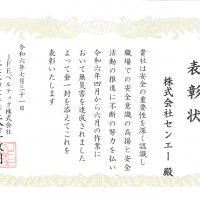 表彰状
株式会社センエー殿
貴社は安全の重要性を深く認識し
職場での安全意識の高揚と安全
活動の推進に不断の努力を払い
令和六年四月から六月の作業に
おいて無災害を達成されました
よって金一封を添えてこれを
表彰いたします
令和六年七月三十一日
JFEベルテック株式会社